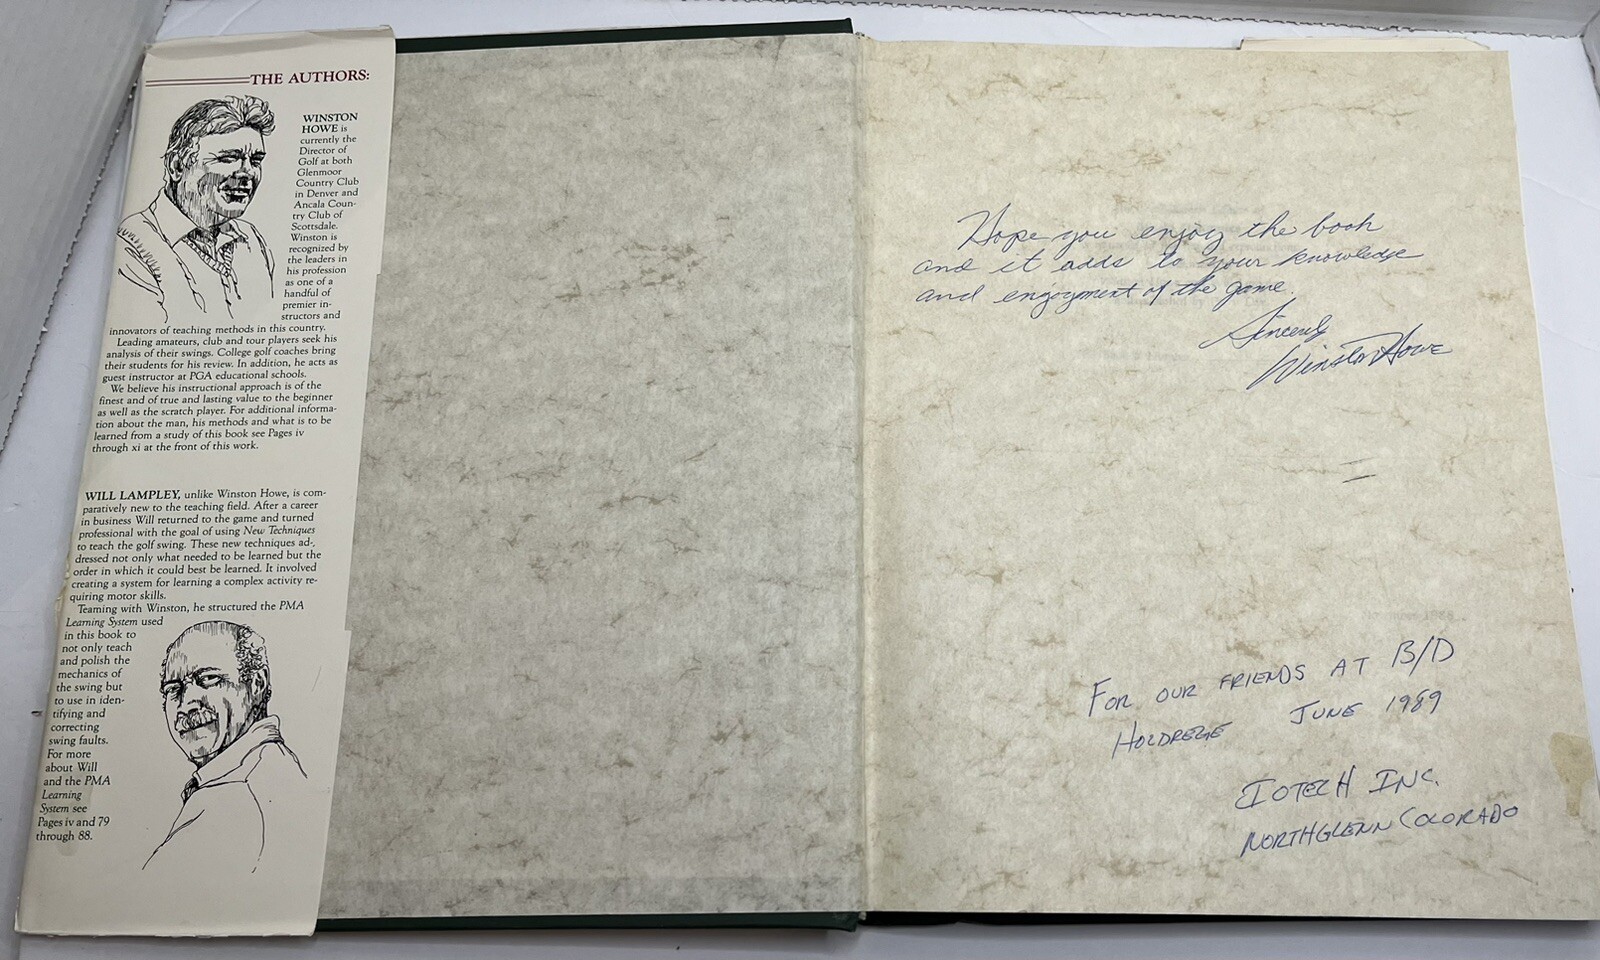 THE AUTHORS:
WINSTON
HOWE is
currently the
Director of
Golf at both
Glenmoor
Country Club
in Denver and
Ancala Coun-
try Club of
Scottsdale.
Winston is
recognized by
the leaders in
his profession
as one of a
handful of
premier in-
structors and
innovators of teaching methods in this country.
Leading amateurs, club and tour players seek his
analysis of their swings. College golf coaches bring
their students for his review. In addition, he acts as
guest instructor at PGA educational schools.
We believe his instructional approach is of the
finest and of true and lasting value to the beginner
as well as the scratch player. For additional informa-
tion about the man, his methods and what is to be
learned from a study of this book see Pages iv
through xi at the front of this work.
WILL LAMPLEY, unlike Winston Howe, is com-
paratively new to the teaching field. After a career
in business Will returned to the game and turned
professional with the goal of using New Techniques
to teach the golf swing. These new techniques ad-
dressed not only what needed to be learned but the
order in which it could best be learned. It involved
creating a system for learning a complex activity re-
quiring motor skills.
Teaming with Winston, he structured the PMA
Learning System used
in this book to
not only teach
and polish the
mechanics of
the swing but
to use in iden-
tifying and
correcting
swing faults.
For more
about Will
and the PMA
Learning
System see
Pages iv and 79
through 88.
Hope you enjoy the book
and it adds to your knowledge
and enjoyment of the game.
Sincerely
Winston Howe
FOR OUR FRIENDS AT B/D
HOLDREGE JUNE 1989
IOTECH INC.
NORTHGLENN COLORADO